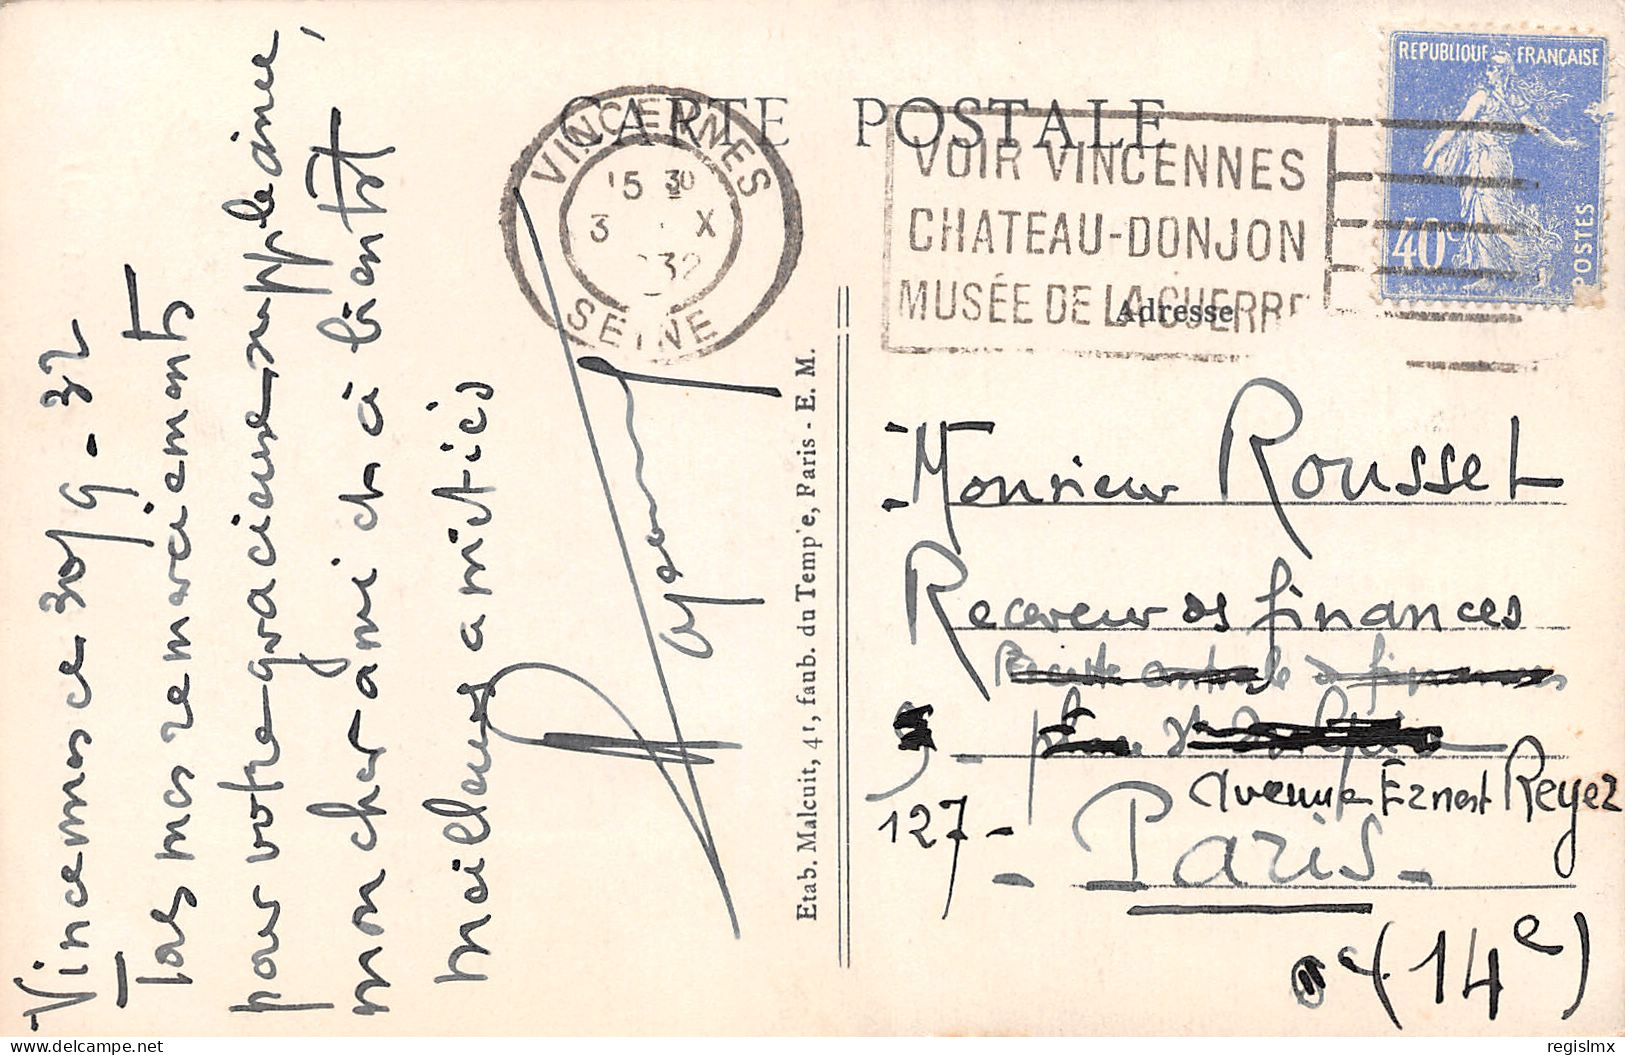 CARTE POSTALE
VINCENNES
15 30
3 X
1932
SEINE
VOIR VINCENNES
CHATEAU-DONJON
MUSÉE DE LA GUERRE
REPUBLIQUE FRANÇAISE
40c
POSTES
Adresse
Vincennes ce 30/9-32
Tous mes remerciements
pour votre gracieuse suppléance,
mon cher ami et à bientôt
meilleures amitiés
Etab. Malcuit, 41, faub. du Temple, Paris - E. M.
Monsieur Rousset
Receveur des finances
Recette centrale des finances
place
127 - Avenue Ernest Reyer
- Paris -
(14e)
delcampe.net
regislmx